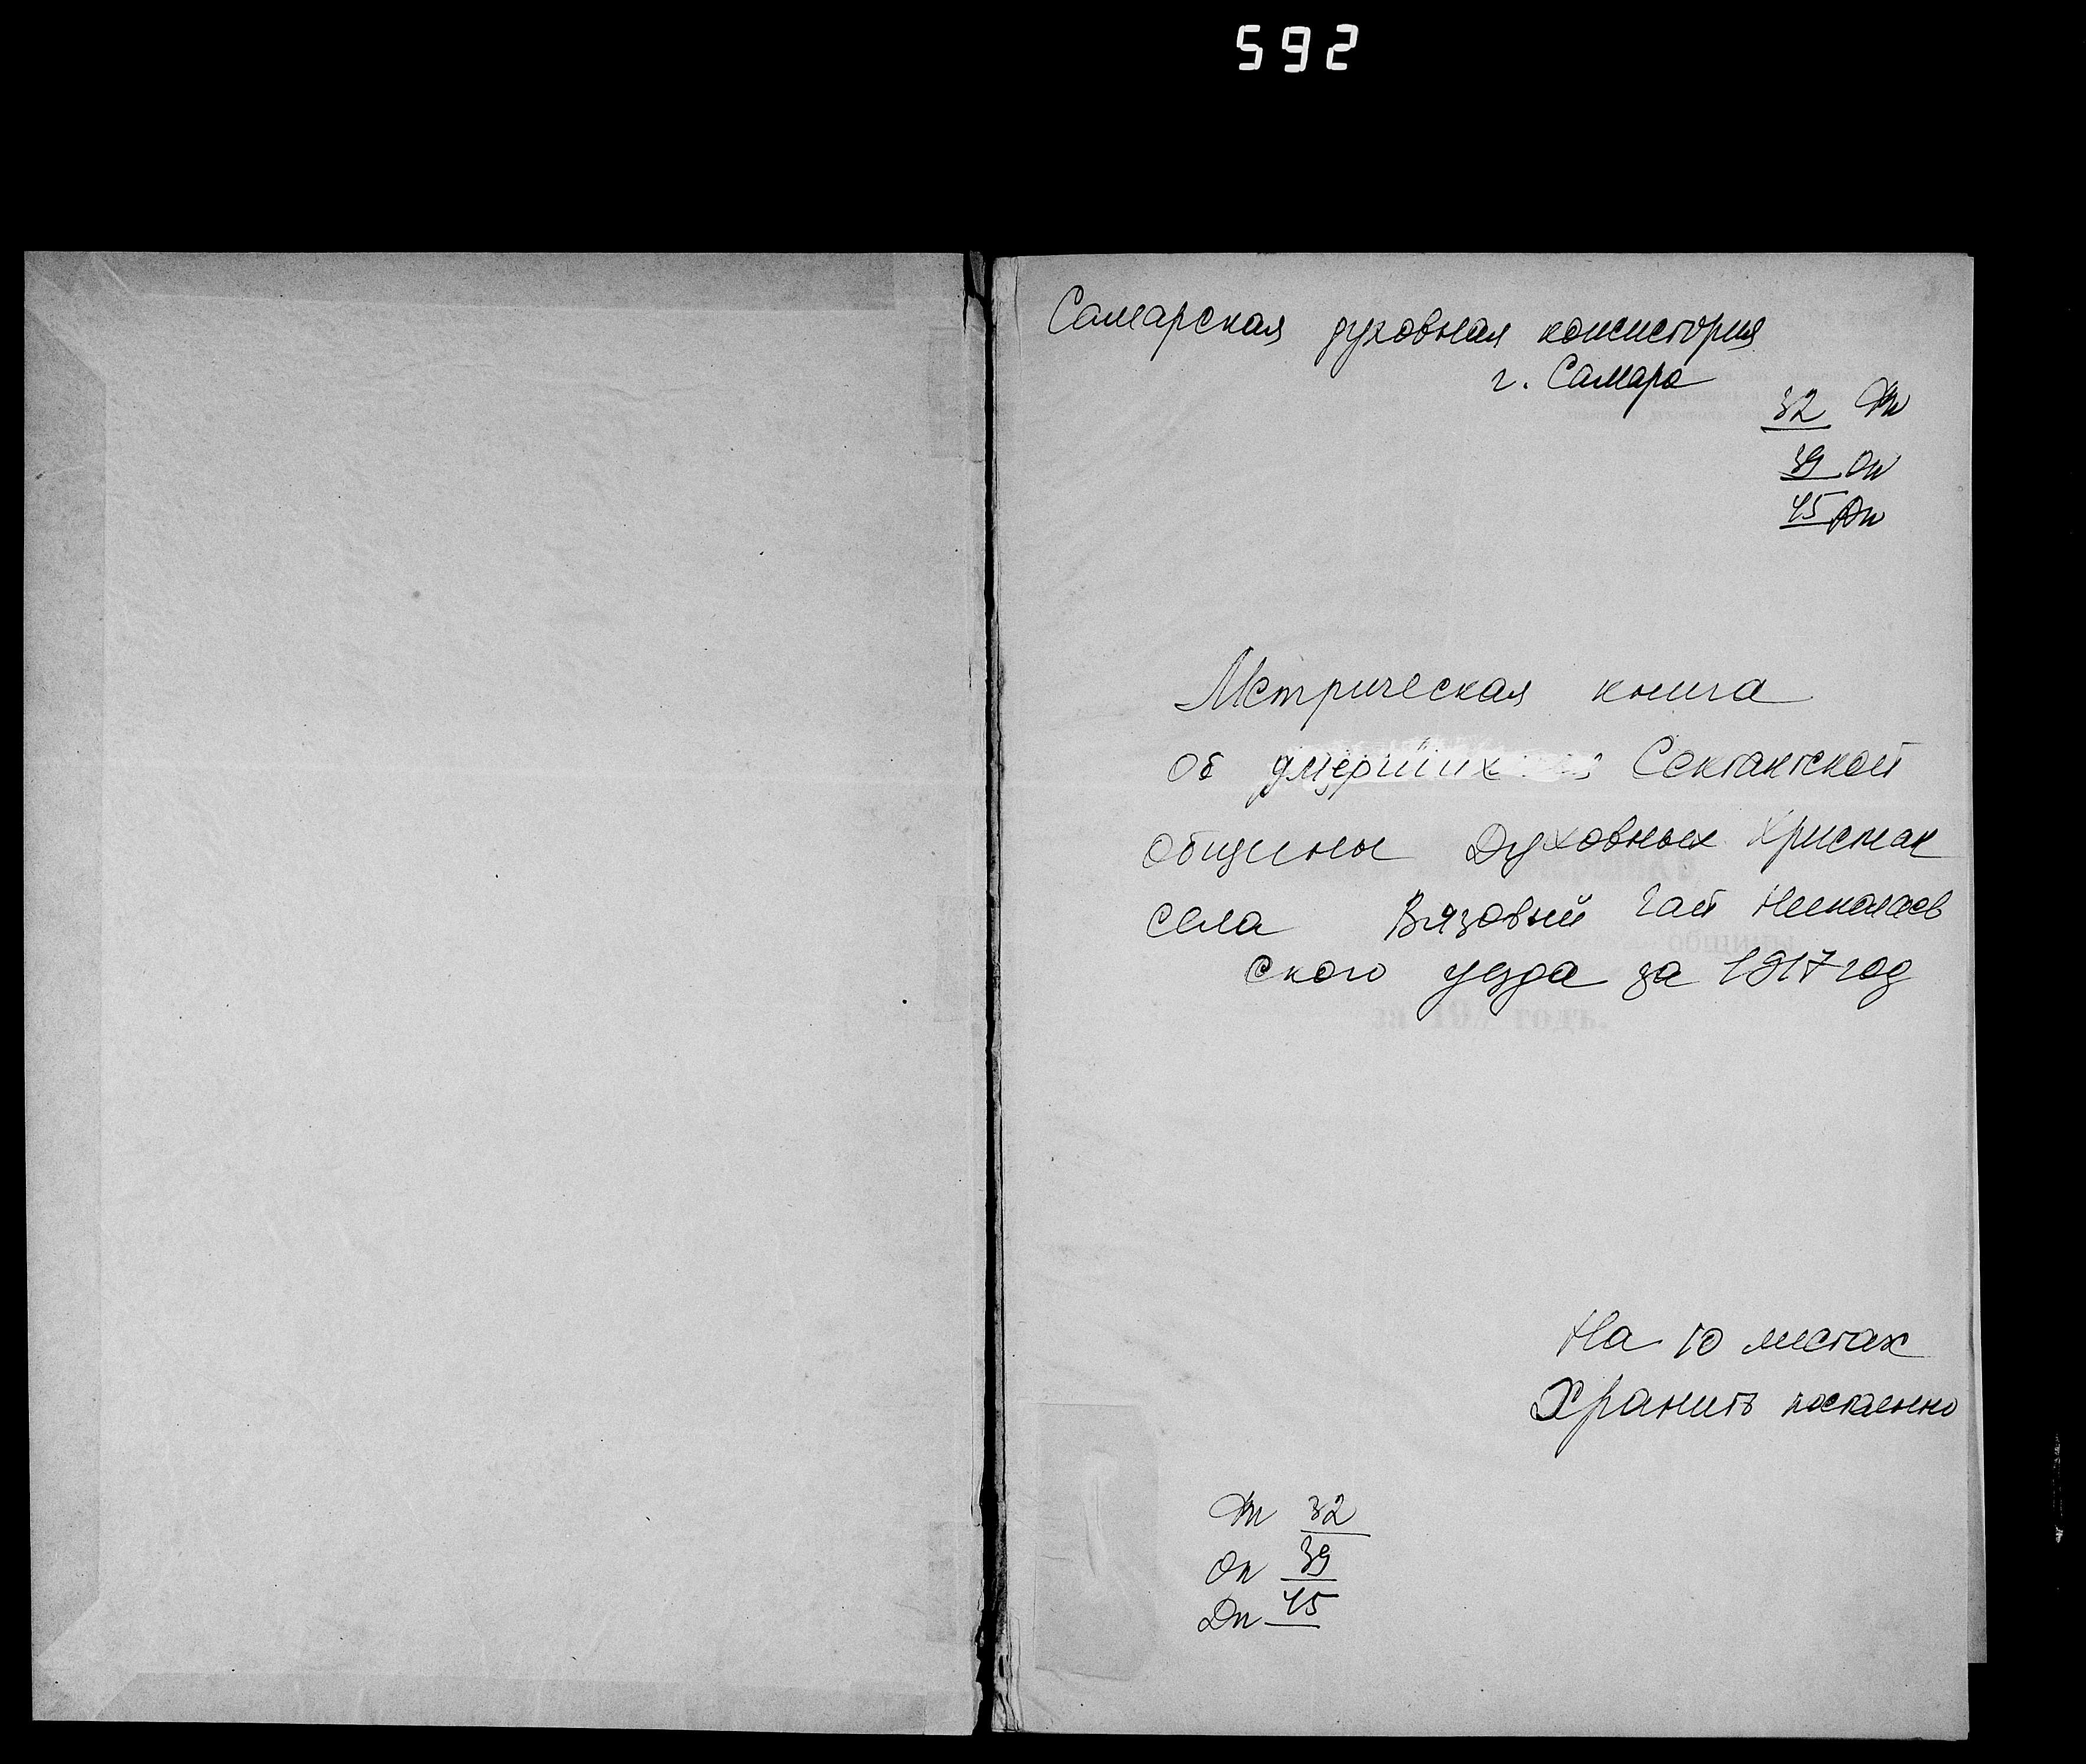 592
Самарская духовная консистория
г. Самара
32 Ф
39 Оп
45 Дп
Метрическая книга
об умерших Сектантской
общины Духовных Христиан
села Вязовый Гай Николаев
ского уезда за 1917 год
за 191 годъ.
На 10 листах
Хранить постоянно
Ф 32
Оп 39
Дп 45